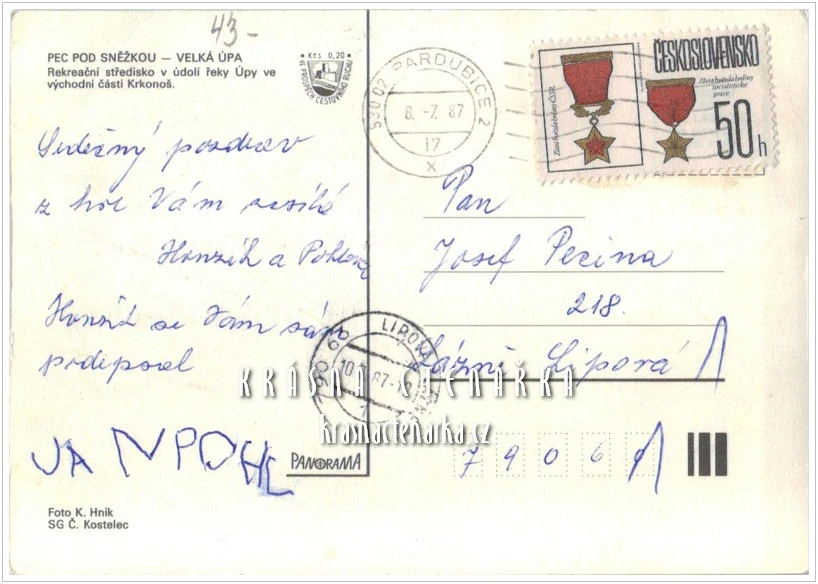 43-
PEC POD SNĚŽKOU — VELKÁ ÚPA
Rekreační středisko v údolí řeky Úpy ve
východní části Krkonoš.
Kčs 0,20
VE PROSPĚCH CESTOVNÍHO RUCHU
530 02 PARDUBICE 2
8.-7. 87
17
x
ČESKOSLOVENSKO
Zlatá hvězda hrdiny ČSSR
Zlatá hvězda hrdiny
socialistické
práce
50h
Srdečný pozdrav
z hor Vám zasílá
Honzík a Pohlovi
Honzík se Vám sám
podepsal
JAN POHL
Pan
Josef Pecina
218.
Lázně Lipová
790 61
LIPOVÁ
KRÁSNÁ ČTENÁŘKA
krasnactenarka.cz
PANORAMA
Foto K. Hník
SG Č. Kostelec